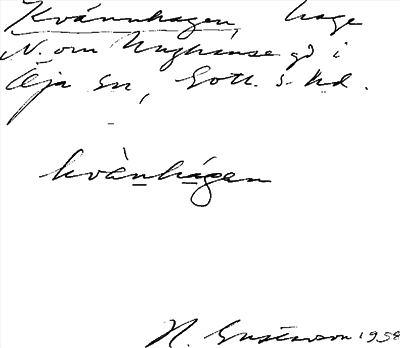 Kvánnhagen, hage
N. om Unghanse gd i
Öja sn, Gotl. s. hd.
kvànhágen
H. Gustavson 1958